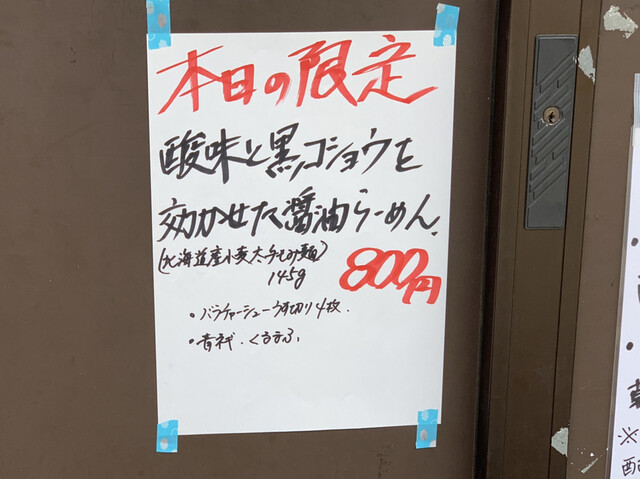 本日の限定
酸味と黒コショウを
効かせた醤油らーめん。
(北海道産小麦太手もみ麺)
145g
800円
・バラチャーシューうす切り4枚.
・青ネギ.くるまふ
・
・
※
配